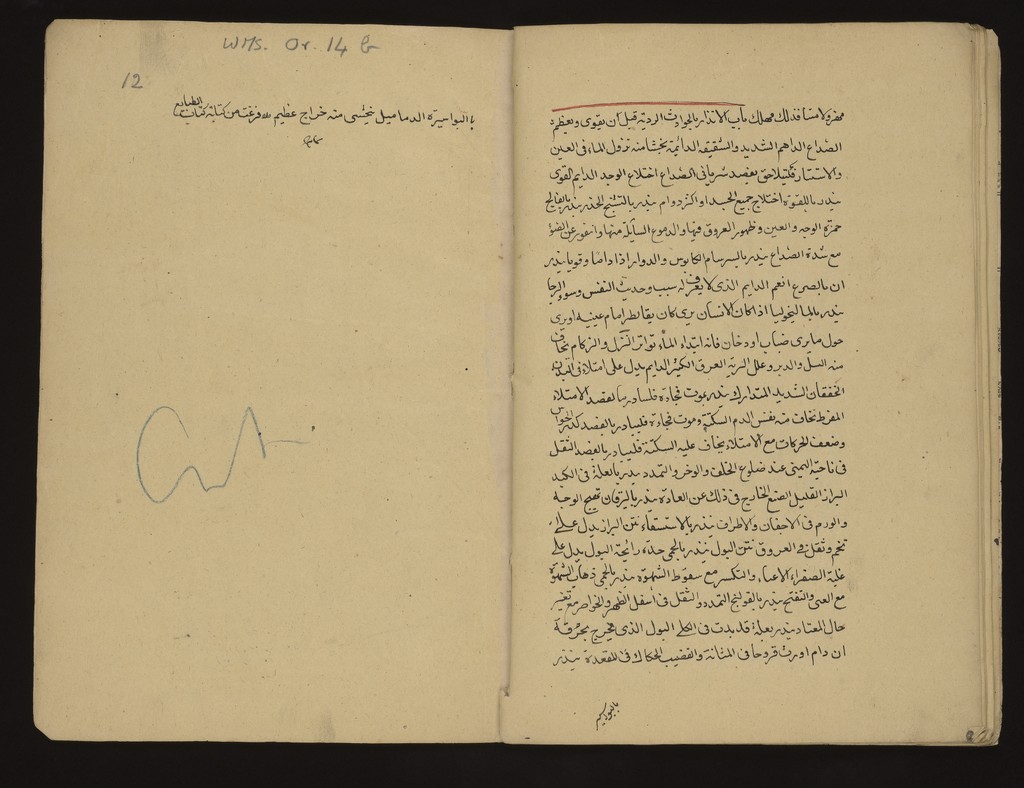 مفرة لا مستا فذلك مهلك باب الانذار بالحوادث الردية قبل ان يقوى ويعظم
الصداع الداهم الشديد والشقيقه الدائمة يخشا منه نزول الماء في العين
والاستتار بفصد شرياني الصداع اختلاج الوجه الدايم القوى
ينذر باللقوة اختلاج جميع الجسد اواكثر دوام ينذر بالتشنج الخدر ينذر بالفالج
حمرة الوجه والعين وظهور العروق فيها والدموع السايلة منها والنفور عن الضوء
مع شدة الصداع ينذر بالسرسام الكابوس والدوار اذا داما وقويا ينذر
ان بالصرع الغم الدايم الذى لا يعرف له سبب وحديث النفس وسوء الرجا
ينذر بالماليخوليا اذا كان الانسان يرى كان بقا يطير امام عينيه اويرى
حول ما يرى ضباب او دخان فانه ابتداء الماء تواتر النزل والزكام يخاف
منه السل والربو وعلل الرية العرق الكثير الدايم يدل على امتلاء في البدن
الخفقان الشديد المتدارك ينذر بموت فجاءة فليبادر بالفصد الامتلاء
المفرط يخاف منه نفس الدم السكتة وموت فجاءة فليبادر بالفصد كدر الحواس
وضعف الحركات مع الامتلاء يخاف عليه السكتة فليبادر بالفصد الثقل
في ناحية اليمنى عند ضلوع الخلف والوخز والتمدد ينذر بالعلة في الكبد
البراز القليل الصبغ الخارج في ذلك عن العادة ينذر باليرقان تهيج الوجه
والورم في الاجفان والاطراف ينذر بالاستسقاء نتن البراز يدل على
تخم وثقل في العروق نتن البول ينذر بالحمى حدة رائحة البول يدل على
غلبة الصفراء الاعياء والتكسر مع سقوط الشهوة ينذر بالحمى ذهاب الشهوة
مع الغى والنفخ ينذر بالقولنج التمدد والثقل في اسفل الظهر والخواصر مع تغير
حال المعتاد ينذر بعلة قد بدت في الكلى البول الذى يخرج بحرقة
ان دام اورث قروحا في المثانة والقضيب الحكاك في المقعدة ينذر
بالبواسير
WMS. Or. 14 b
12
بالبواسيرة الدماميل يخشى منه خراج عظيم فرغت من كتابة كتاب الطبايع
تمام